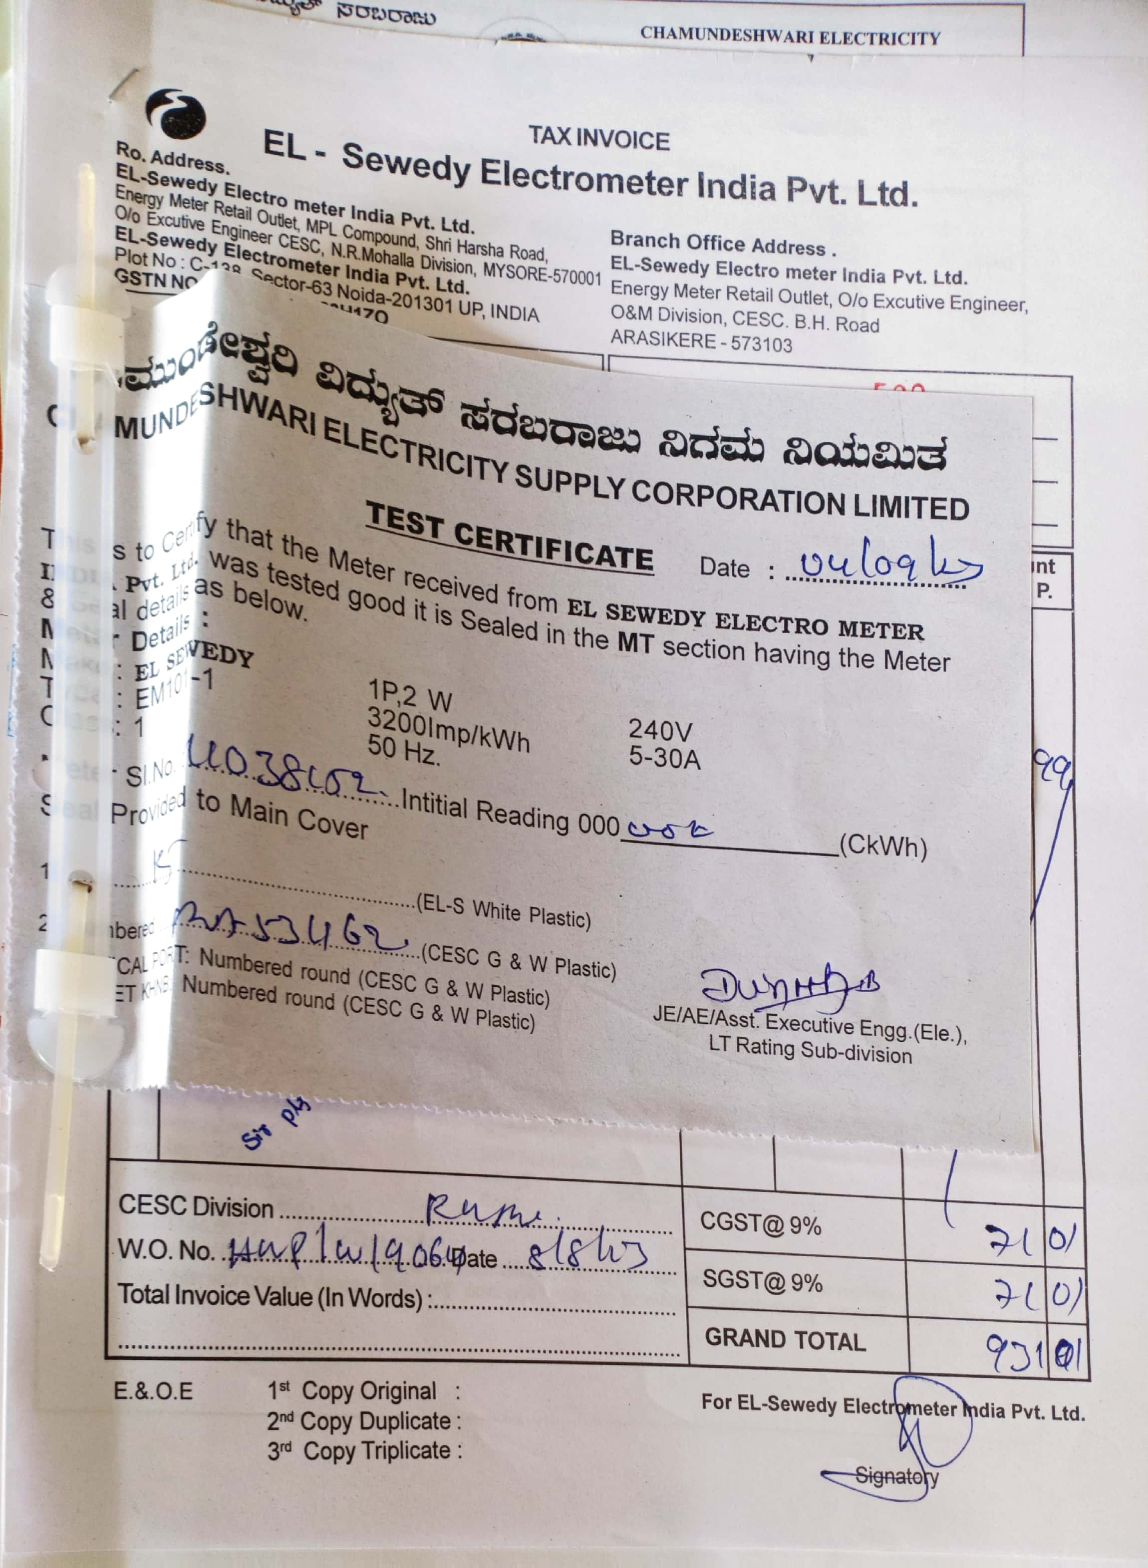 ಸರಬರಾಜು
CHAMUNDESHWARI ELECTRICITY
TAX INVOICE
EL - Sewedy Electrometer India Pvt. Ltd.
Ro. Address.
EL-Sewedy Electro meter India Pvt. Ltd.
Energy Meter Retail Outlet, MPL Compound, Shri Harsha Road,
O/o Excutive Engineer CESC, N.R.Mohalla Division, MYSORE-570001
EL-Sewedy Electrometer India Pvt. Ltd.
Plot No : C-138 Sector-63 Noida-201301 UP, INDIA
GSTN NO
Branch Office Address .
EL-Sewedy Electro meter India Pvt. Ltd.
Energy Meter Retail Outlet, O/o Excutive Engineer,
O&M Division, CESC. B.H. Road
ARASIKERE - 573103
ಮುಂಡೇಶ್ವರಿ ವಿದ್ಯುತ್ ಸರಬರಾಜು ನಿಗಮ ನಿಯಮಿತ
CHAMUNDESHWARI ELECTRICITY SUPPLY CORPORATION LIMITED
TEST CERTIFICATE
Date :
This is to Certify that the Meter received from EL SEWEDY ELECTRO METER
INDIA Pvt. Ltd. was tested good it is Sealed in the MT section having the Meter
& details as below.
Details :
: EL SEWEDY
: EM101-1 1P,2 W 240V
: 1 3200Imp/kWh 5-30A
50 Hz.
Sl.No Intitial Reading 000 (CkWh)
Seal Provided to Main Cover
(EL-S White Plastic)
(CESC G & W Plastic)
Numbered round (CESC G & W Plastic)
Numbered round (CESC G & W Plastic)
JE/AE/Asst. Executive Engg.(Ele.),
LT Rating Sub-division
nt
P.
99
CESC Division
W.O. No. Date
Total Invoice Value (In Words) :
CGST@ 9% 71 01
SGST@ 9% 71 01
GRAND TOTAL 931 01
E.& O.E
1st Copy Original :
2nd Copy Duplicate :
3rd Copy Triplicate :
For EL-Sewedy Electrometer India Pvt. Ltd.
Signatory